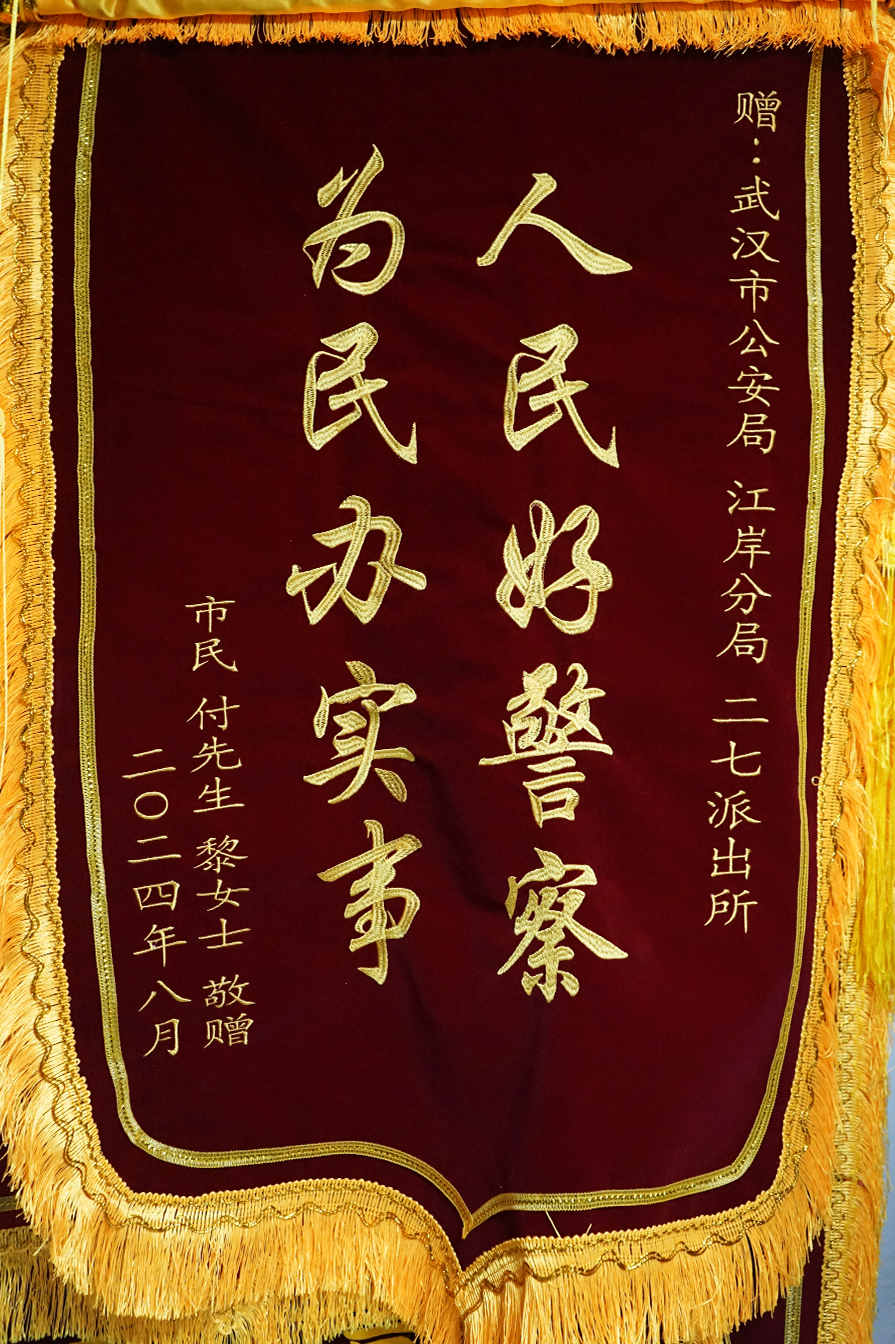 赠：武汉市公安局 江岸分局 二七派出所
人民好警察
为民办实事
市民 付先生 黎女士 敬赠
二〇二四年八月